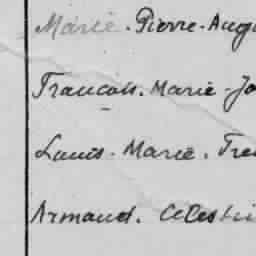 Marie. Pierre-Augu
Francois. Marie-Jo
Louis. Marie. Fre
Armand. Celesti